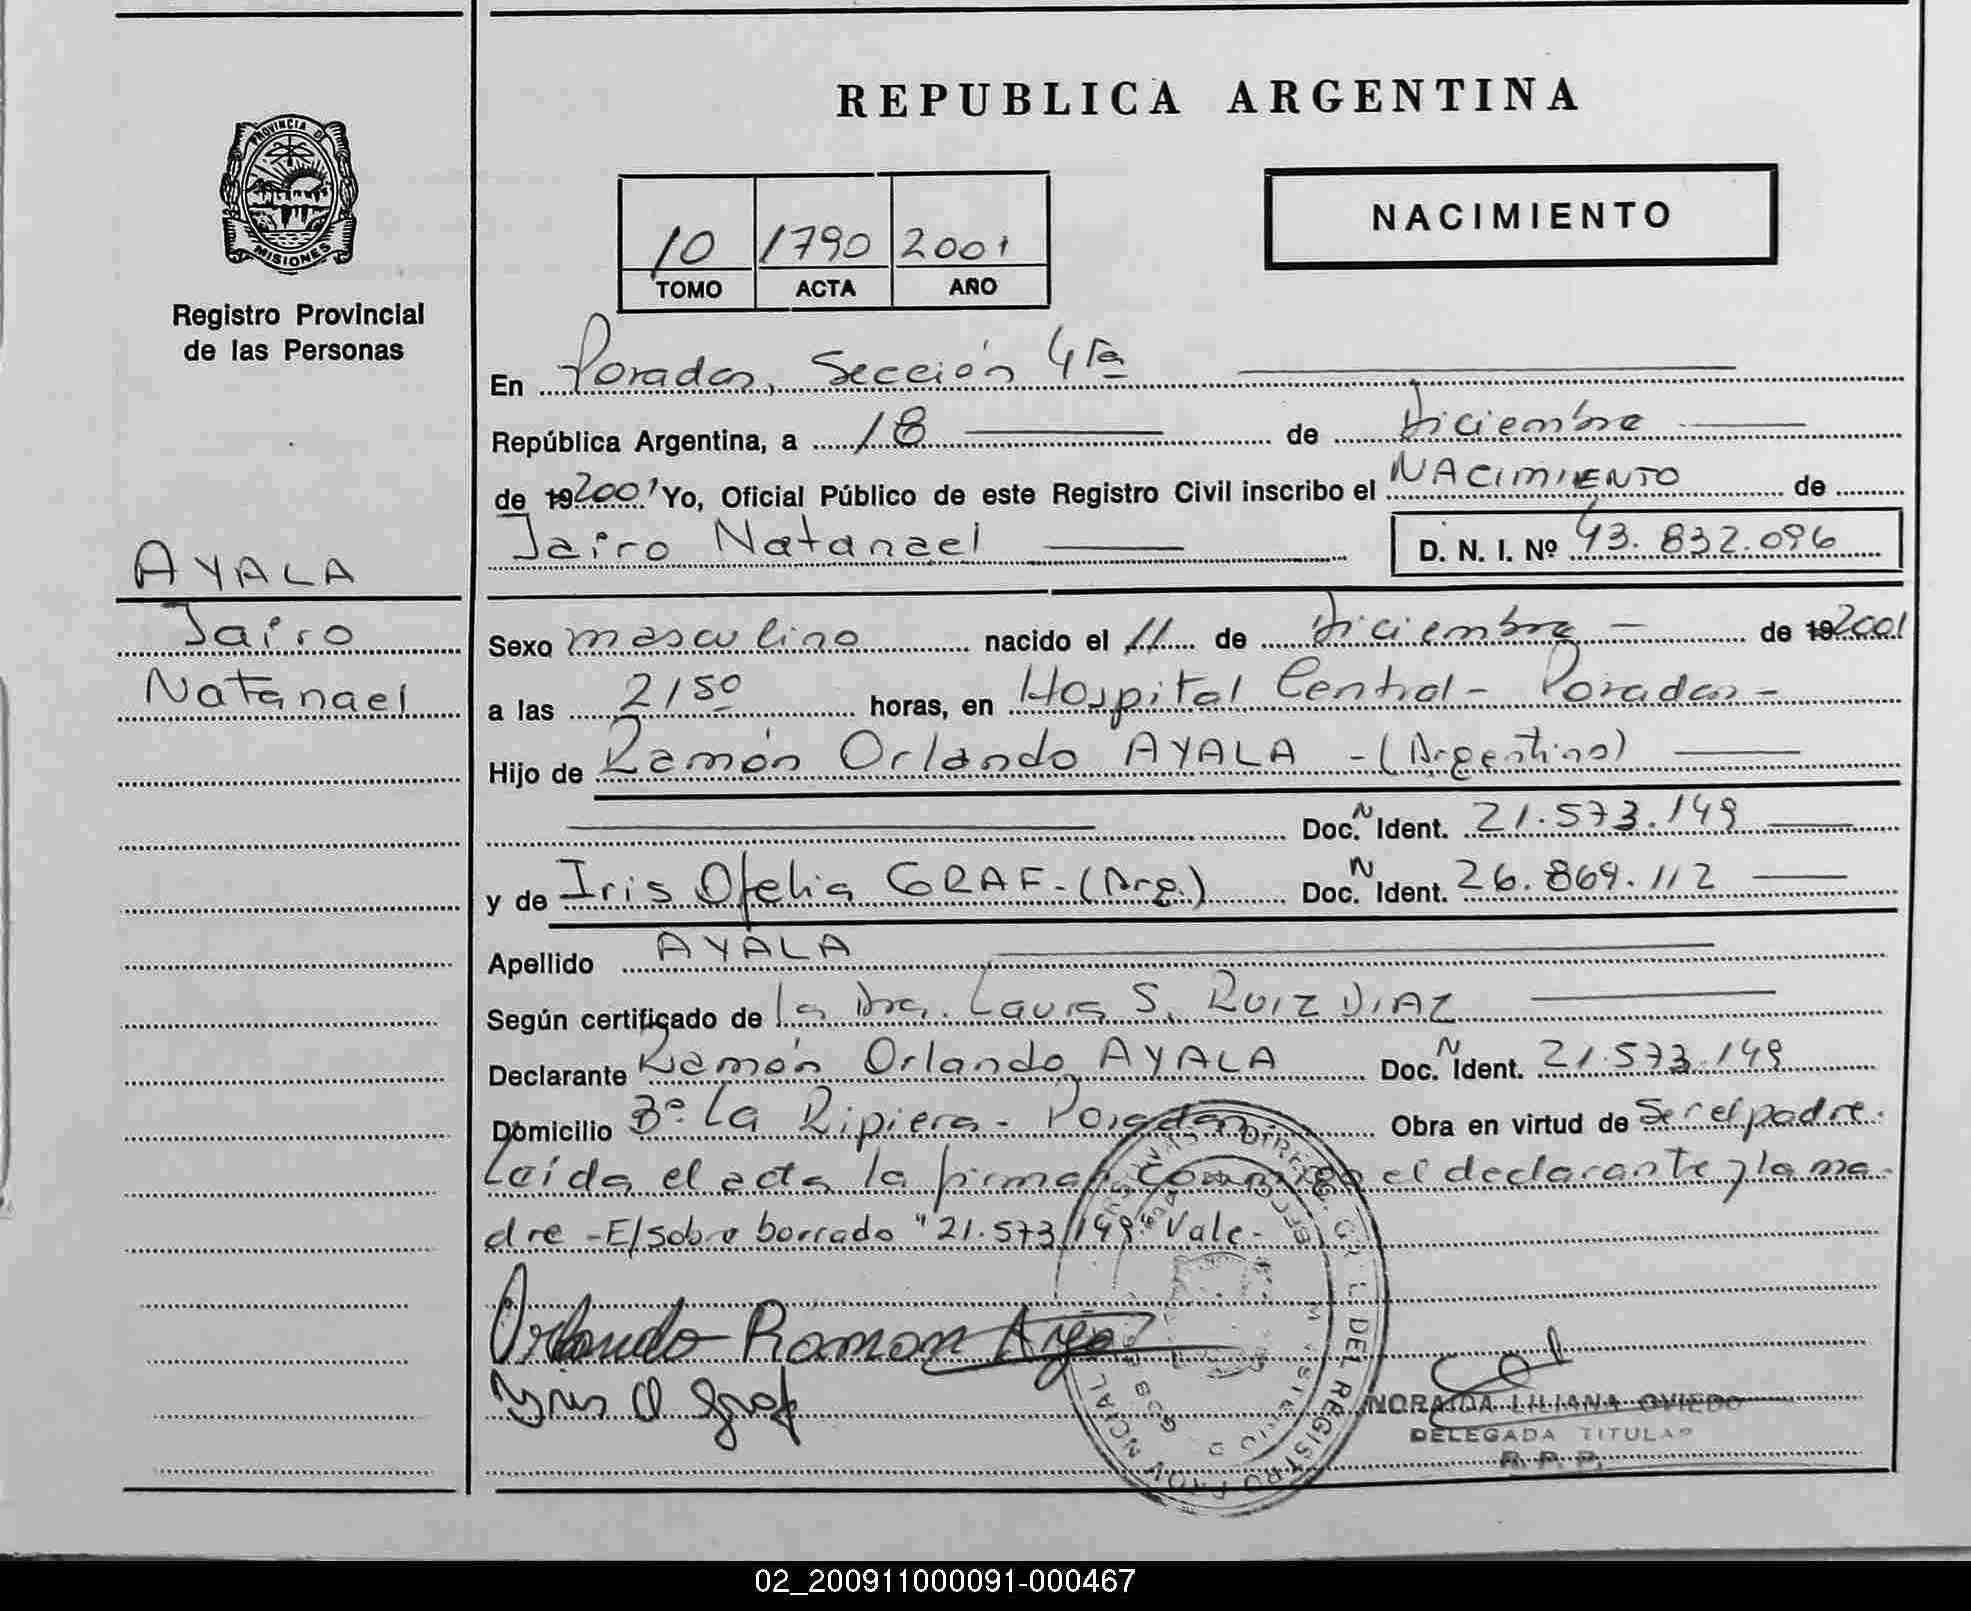 REPUBLICA ARGENTINA
PROVINCIA DE
MISIONES
Registro Provincial
de las Personas
10 1790 2001
TOMO ACTA AÑO
NACIMIENTO
En Posadas, Sección 4ta
República Argentina, a 18 de Diciembre
de 192001 Yo, Oficial Público de este Registro Civil inscribo el NACIMIENTO de
Jairo Natanael D. N. I. Nº 43.832.096
AYALA
Jairo
Natanael
Sexo masculino nacido el 11 de Diciembre - de 192001
a las 21 50 horas, en Hospital Central - Posadas -
Hijo de Ramón Orlando AYALA - (Argentino)
Doc. N Ident. 21.573.149
y de Iris Ofelia GRAF - (Arg.) Doc. N Ident. 26.869.112
Apellido AYALA
Según certificado de la Dra. Laura S. RUIZ DIAZ
Declarante Ramón Orlando AYALA Doc. N Ident. 21.573.149
Domicilio Bº La Ripiera - Posadas Obra en virtud de Ser el padre.
Leída el acta la firman conmigo el declarante y la ma-
dre - E/sobre borrado "21.573.149" Vale -
Orlando Ramon Ayala
Yris O Graf
DEL REGISTRO PROVINCIAL
NORAIDA LILIANA OVIEDO
DELEGADA TITULAR
R. P. P.
02_200911000091-000467